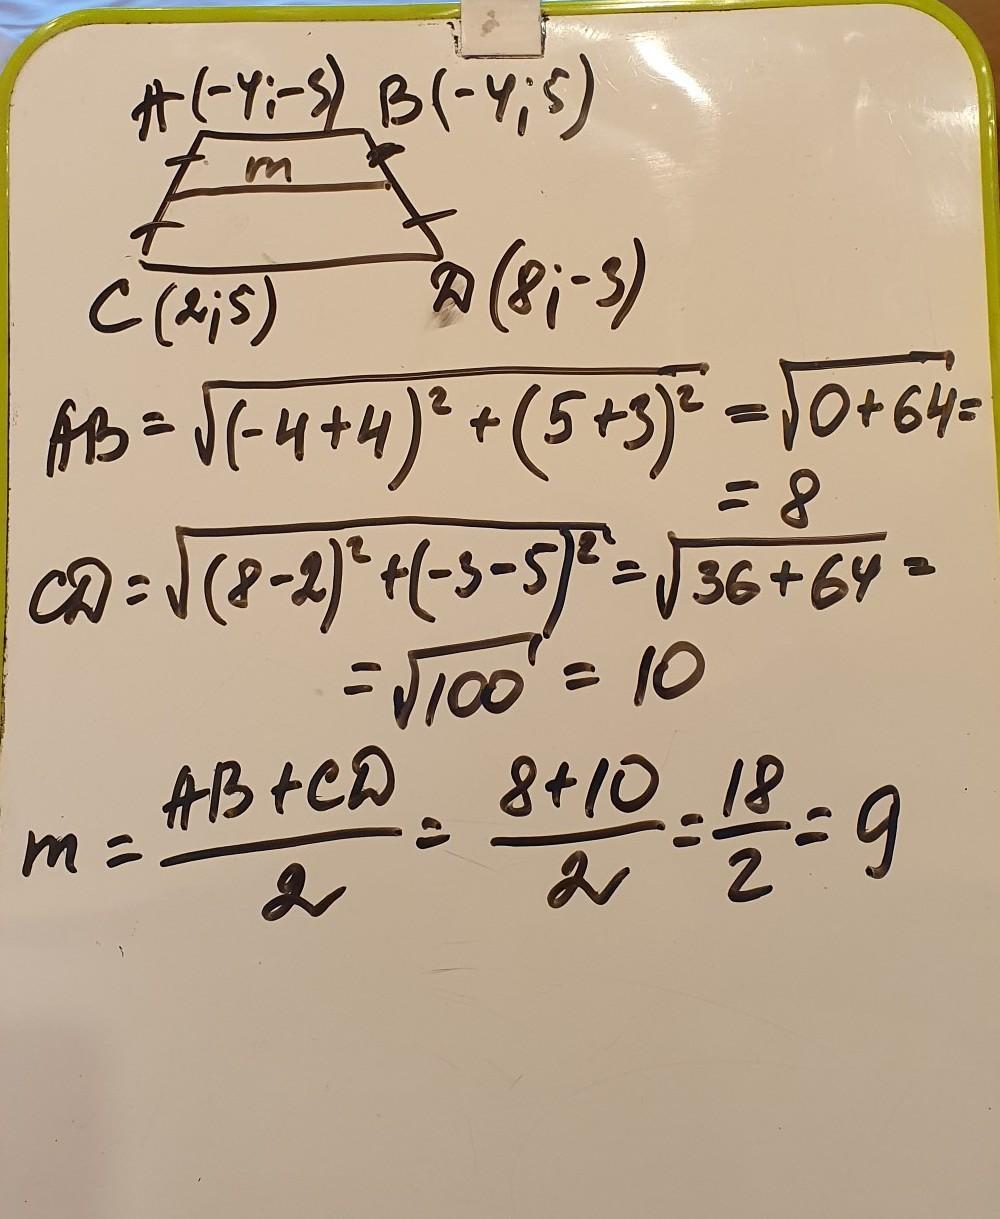 A(-4;-3) B(-4;5)
m
C(2;5) D(8;-3)
AB = √(-4+4)² + (5+3)² = √0+64 =
= 8
CD = √(8-2)² + (-3-5)² = √36+64 =
= √100 = 10
m = AB+CD/2 = 8+10/2 = 18/2 = 9